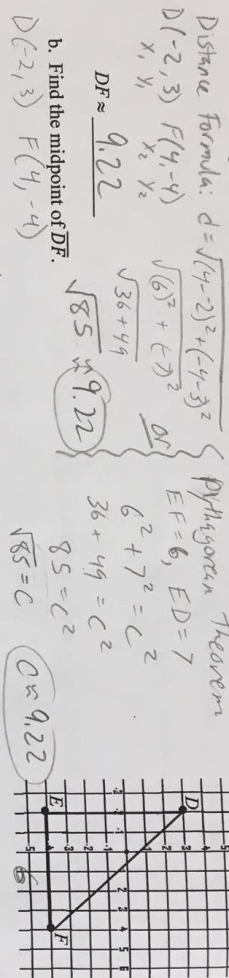 Distance Formula: d = √(4-2)² + (-4-3)²
D(-2, 3) F(4, -4)
x₁ y₁ x₂ y₂
√(6)² + (-7)²
√36 + 49
DF ≈ 9.22
√85 ≈ 9.22
or
Pythagorean Theorem
EF = 6, ED = 7
6² + 7² = c²
36 + 49 = c²
85 = c²
√85 = c
c ≈ 9.22
b. Find the midpoint of DF.
D(-2, 3) F(4, -4)
D
E
F
6